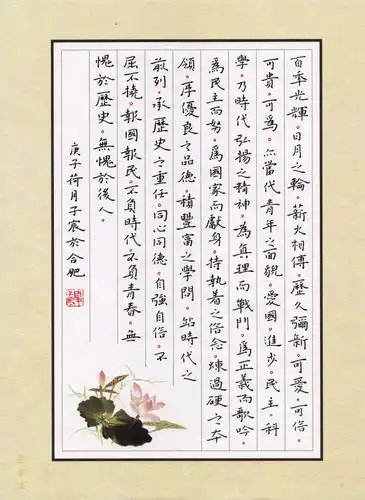 百年光輝。日月之輪。薪火相傳。歷久彌新。可愛。可信。
可貴。可為。尒當代青年之面貌。愛國。進步。民主。科
學。乃時代弘揚之精神。為真理而戰鬥。為正義而歌吟。
為民主而努。為國家而獻身。持執着之信念。煉過硬之本
領。厚優良之品德。積豐富之學問。站時代之
前列。承歷史之重任。同心同德。自強自信。不
屈不撓。報國報民。不負時代。不負青春。無
愧於歷史。無愧於後人。
庚子荷月子宸於合肥